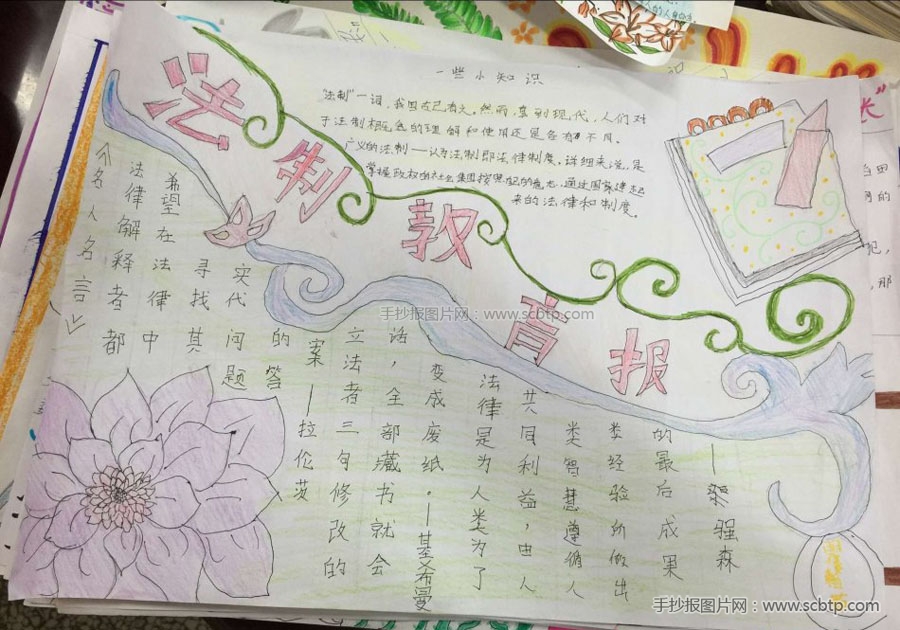 法制教育报
一些小知识
"法制"一词,我国古已有之。然而,直到现代,人们对
于法制概念的理解和使用还是各有不同。
广义的法制——认为法制即法律制度。详细来说,是
掌握政权的社会集团按照自己的意志、通过国家建起
来的法律和制度。
名人名言
法律解释者都
希望在法律中
寻找其
实代问题
的答
案—拉伦茨
立法者三句修改的
话,全部藏书就会
变成废纸。—基希曼
法律是为人类为了
共同利益,由人
类智慧遵循人
类经验所做出
的最后成果
—强森
手抄报图片网:www.scbtp.com
手抄报图片网:www.scbtp.com